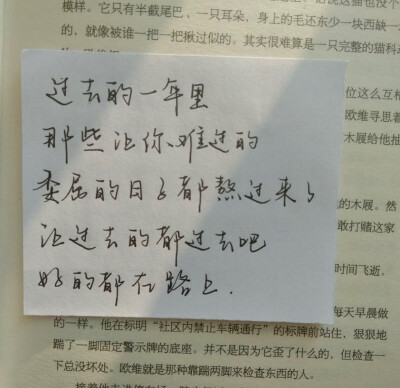 模样。它只有半截尾巴、一只耳朵，身上的毛还东少一块西缺一
的，就像被谁一把一把揪过似的。其实很难算是一只完整的猫科
过去的一年里
那些让你难过的
委屈的日子都熬过来了
让过去的都过去吧
好的都在路上.
位这么互相
欧维寻思着
木屐给他抽
的木屐。然
敢打赌这家
时间飞逝，
每天早晨做
的一样。他在标明“社区内禁止车辆通行”的标牌前站住，狠狠地
踹了一脚固定警示牌的底座。并不是因为它歪了什么的，但检查一
下总没坏处。欧维就是那种靠踹两脚来检查东西的人。